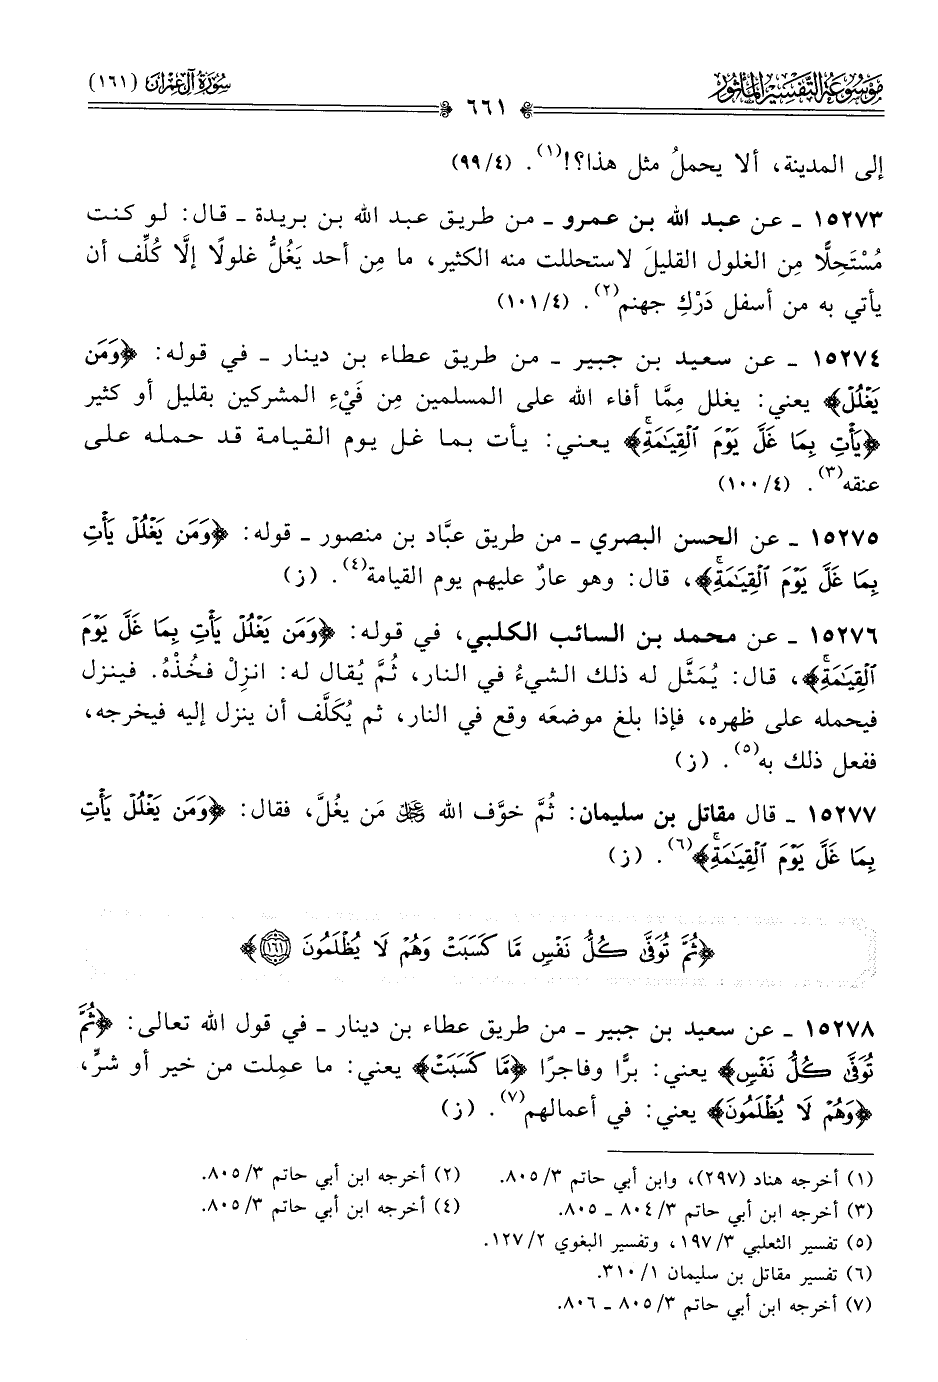 مَوْسُوعَة التَّفْسِير المَأْثُور
سُورَةُ آلِ عِمْرَان (١٦١)
٦٦١
إلى المدينة، ألا يحملُ مثل هذا؟!(١). (٤/ ٩٩)
١٥٢٧٣ ـ عن عبد الله بن عمرو ـ من طريق عبد الله بن بريدة ـ قال: لو كنت
مُسْتَحِلًّا مِن الغلول القليلَ لاستحللت منه الكثير، ما مِن أحد يَغُلُّ غلولًا إلَّا كُلِّف أن
يأتي به من أسفل دَرْكِ جهنم(٢). (٤/ ١٠١)
١٥٢٧٤ ـ عن سعيد بن جبير ـ من طريق عطاء بن دينار ـ في قوله: ﴿وَمَن
يَغْلُلْ﴾ يعني: يغلل مِمَّا أفاء الله على المسلمين مِن فَيْءِ المشركين بقليل أو كثير
﴿يَأْتِ بِمَا غَلَّ يَوْمَ ٱلْقِيَٰمَةِۚ﴾ يعني: يأت بما غل يوم القيامة قد حمله على
عنقه(٣). (٤/ ١٠٠)
١٥٢٧٥ ـ عن الحسن البصري ـ من طريق عبَّاد بن منصور ـ قوله: ﴿وَمَن يَغْلُلْ يَأْتِ
بِمَا غَلَّ يَوْمَ ٱلْقِيَٰمَةِۚ﴾، قال: وهو عارٌ عليهم يوم القيامة(٤). (ز)
١٥٢٧٦ ـ عن محمد بن السائب الكلبي، في قوله: ﴿وَمَن يَغْلُلْ يَأْتِ بِمَا غَلَّ يَوْمَ
ٱلْقِيَٰمَةِۚ﴾، قال: يُمَثَّل له ذلك الشيءُ في النار، ثُمَّ يُقال له: انزِلْ فخُذْهُ. فينزل
فيحمله على ظهره، فإذا بلغ موضعَه وقع في النار، ثم يُكَلَّف أن ينزل إليه فيخرجه،
ففعل ذلك به(٥). (ز)
١٥٢٧٧ ـ قال مقاتل بن سليمان: ثُمَّ خوَّف الله ﷿ مَن يغُلَّ، فقال: ﴿وَمَن يَغْلُلْ يَأْتِ
بِمَا غَلَّ يَوْمَ ٱلْقِيَٰمَةِۚ﴾(٦). (ز)
﴿ثُمَّ تُوَفَّىٰ كُلُّ نَفْسٍ مَّا كَسَبَتْ وَهُمْ لَا يُظْلَمُونَ ١٦١﴾
١٥٢٧٨ ـ عن سعيد بن جبير ـ من طريق عطاء بن دينار ـ في قول الله تعالى: ﴿ثُمَّ
تُوَفَّىٰ كُلُّ نَفْسٍ﴾ يعني: برًّا وفاجرًا ﴿مَّا كَسَبَتْ﴾ يعني: ما عمِلت من خير أو شرٍّ،
﴿وَهُمْ لَا يُظْلَمُونَ﴾ يعني: في أعمالهم(٧). (ز)
(١) أخرجه هناد (٢٩٧)، وابن أبي حاتم ٣/ ٨٠٥.
(٢) أخرجه ابن أبي حاتم ٣/ ٨٠٥.
(٣) أخرجه ابن أبي حاتم ٣/ ٨٠٤ ـ ٨٠٥.
(٤) أخرجه ابن أبي حاتم ٣/ ٨٠٥.
(٥) تفسير الثعلبي ٣/ ١٩٧، وتفسير البغوي ٢/ ١٢٧.
(٦) تفسير مقاتل بن سليمان ١/ ٣١٠.
(٧) أخرجه ابن أبي حاتم ٣/ ٨٠٥ ـ ٨٠٦.